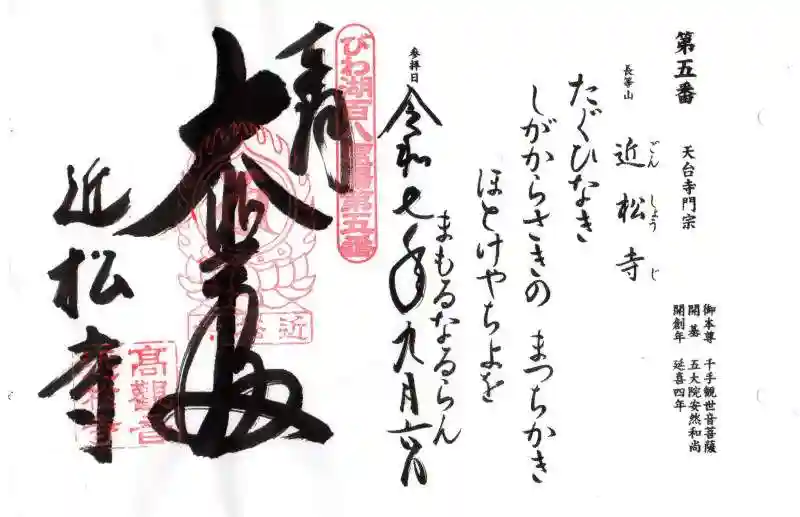 第五番
天台寺門宗
御本尊 千手観世音菩薩
開基 五大院安然和尚
開創年 延喜四年
長等山 近松寺
ごん しょう じ
たぐひなき
しがからさきの まつちかき
ほとけやちよを
まもるなるらん
参拝日
令和七年九月六日
びわ湖百八霊場第五番
奉拝
大悲殿
近松寺
高觀音
近松寺